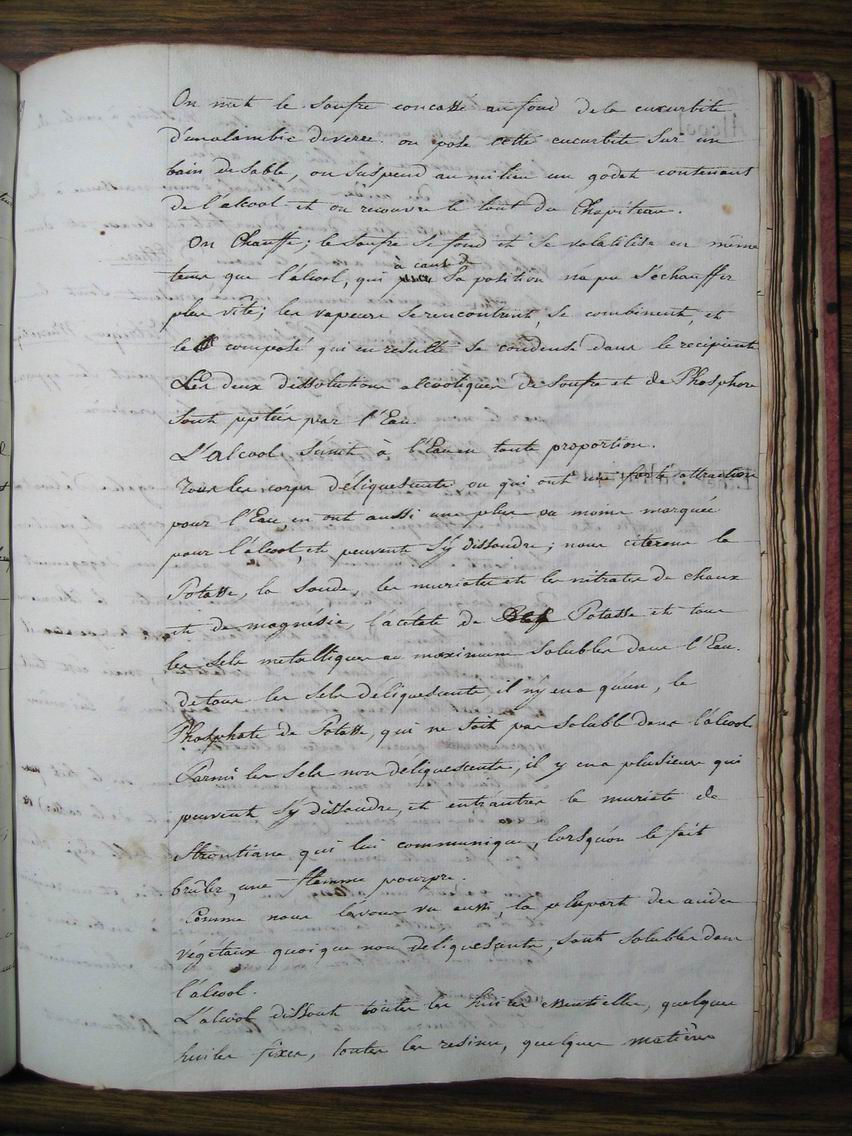 On met le Soufre concassé au fond de la cucurbite
d'un alambic de verre. on pose cette cucurbite sur un
bain de Sable, on suspend au milieu un godet contenant
de l'alcool et on recouvre le tout du Chapiteau.
On Chauffe; le Soufre se fond et se volatilise en même
à cause de
tems que l'alcool, qui sa position n'a pu s'échauffer
plus vîte; les vapeurs se rencontrent, se combinent, et
le composé qui en resulte se condense dans le recipient
Les deux dissolutions alcooliques de Soufre et de Phosphore
sont pptées par l'Eau.
L'alcool s'unit à l'Eau en toute proportion.
Tous les corps déliquescents ou qui ont une forte attraction
pour l'Eau, en ont aussi une plus ou moins marquée
pour l'alcool, et peuvent s'y dissoudre; nous citerons la
Potasse, la Soude, les muriates et les nitrates de chaux
et de magnésie, l'acétate de Potasse et tous
les Sels metalliques au maximum solubles dans l'Eau.
de tous les Sels deliquescents, il n'y en a qu'un, le
Phosphate de Potasse, qui ne soit pas soluble dans l'alcool.
Parmi les Sels non deliquescents, il y en a plusieurs qui
peuvent s'y dissoudre, et entr'autres le muriate de
Strontiane qui lui communique, lorsqu'on le fait
brûler, une flamme pourpre.
Comme nous l'avons vu aussi, la plupart des acides
végétaux quoique non deliquescents, sont solubles dans
l'alcool.
L'alcool dissout toutes les huiles essentielles, quelques
huiles fixes, toutes les resines, quelques matières